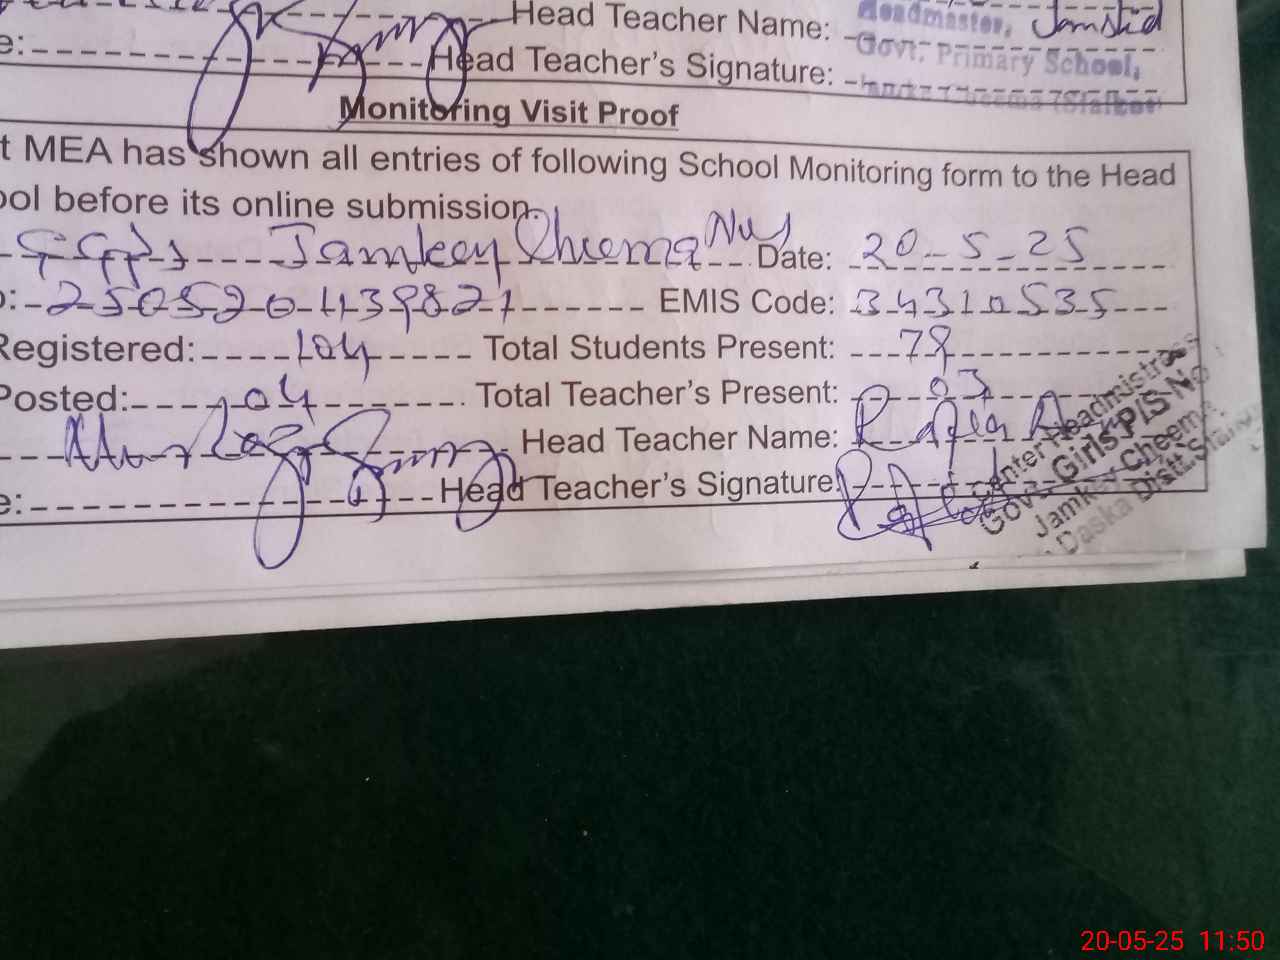 Head Teacher Name: Headmaster, Jamshid
e: Head Teacher's Signature: Govt. Primary School,
Monitoring Visit Proof
t MEA has shown all entries of following School Monitoring form to the Head
ool before its online submission.
GGPS Jamkey Cheema No 1 Date: 20-5-25
o: 250520439821 EMIS Code: 34310535
Registered: 104 Total Students Present: 78
Posted: 04 Total Teacher's Present: 03
Head Teacher Name: Rafia
e: Head Teacher's Signature:
Center Headmistress
Govt. Girls P/S No
Jamkey Cheema
Daska Distt Sialkot
20-05-25 11:50